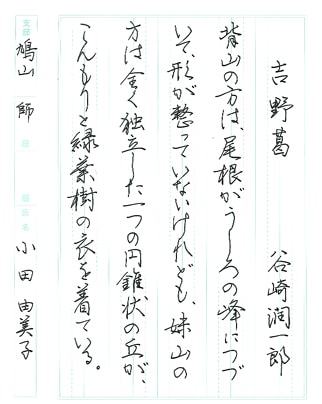 吉野葛　谷崎潤一郎
背山の方は、尾根がうしろの峰につづ
いて、形が整っていないけれども、妹山の
方は全く独立した一つの円錐状の丘が、
こんもりと緑葉樹の衣を着ている。
支部 鳩山 師 段 級 氏名 小田由美子